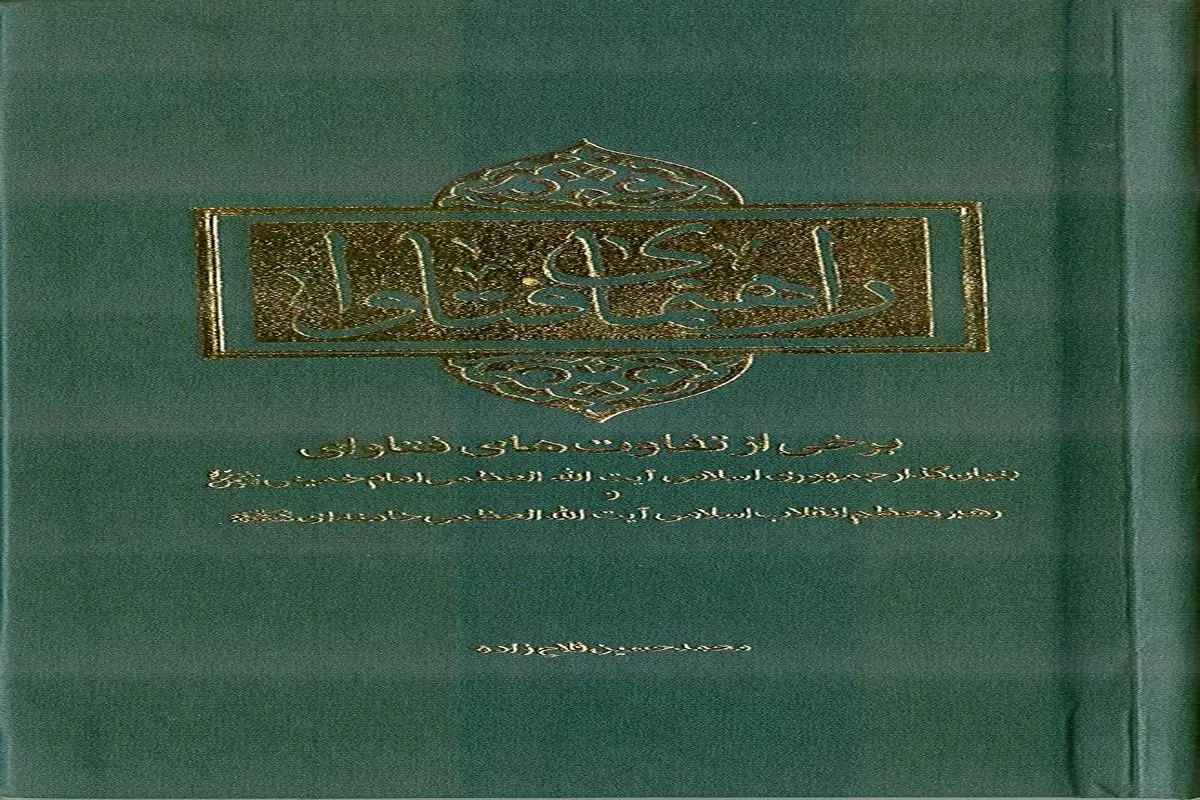 راهنمای فتاوا
برخی از تفاوت‌های فتاوای
بنیان‌گذار جمهوری اسلامی آیت الله العظمی امام خمینی
و
رهبر معظم انقلاب اسلامی آیت الله العظمی خامنه‌ای
محمدحسین فلاح زاده